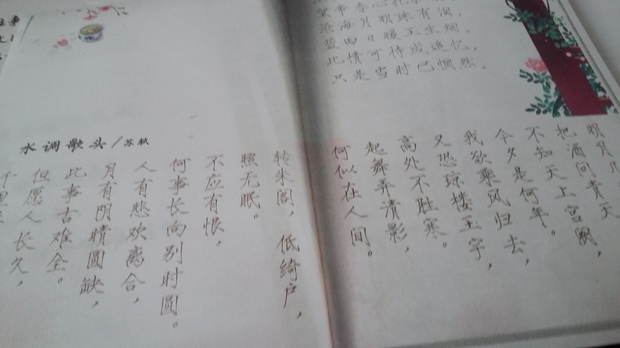 望帝春心托
沧海月明珠有泪，
蓝田日暖玉生烟。
此情可待成追忆，
只是当时已惘然。
水调歌头/苏轼
明月几
把酒问青天
不知天上宫阙，
今夕是何年。
我欲乘风归去，
又恐琼楼玉宇，
高处不胜寒。
起舞弄清影，
何似在人间。
转朱阁，低绮户，
照无眠。
不应有恨，
何事长向别时圆。
人有悲欢离合，
月有阴晴圆缺，
此事古难全。
但愿人长久，
千里